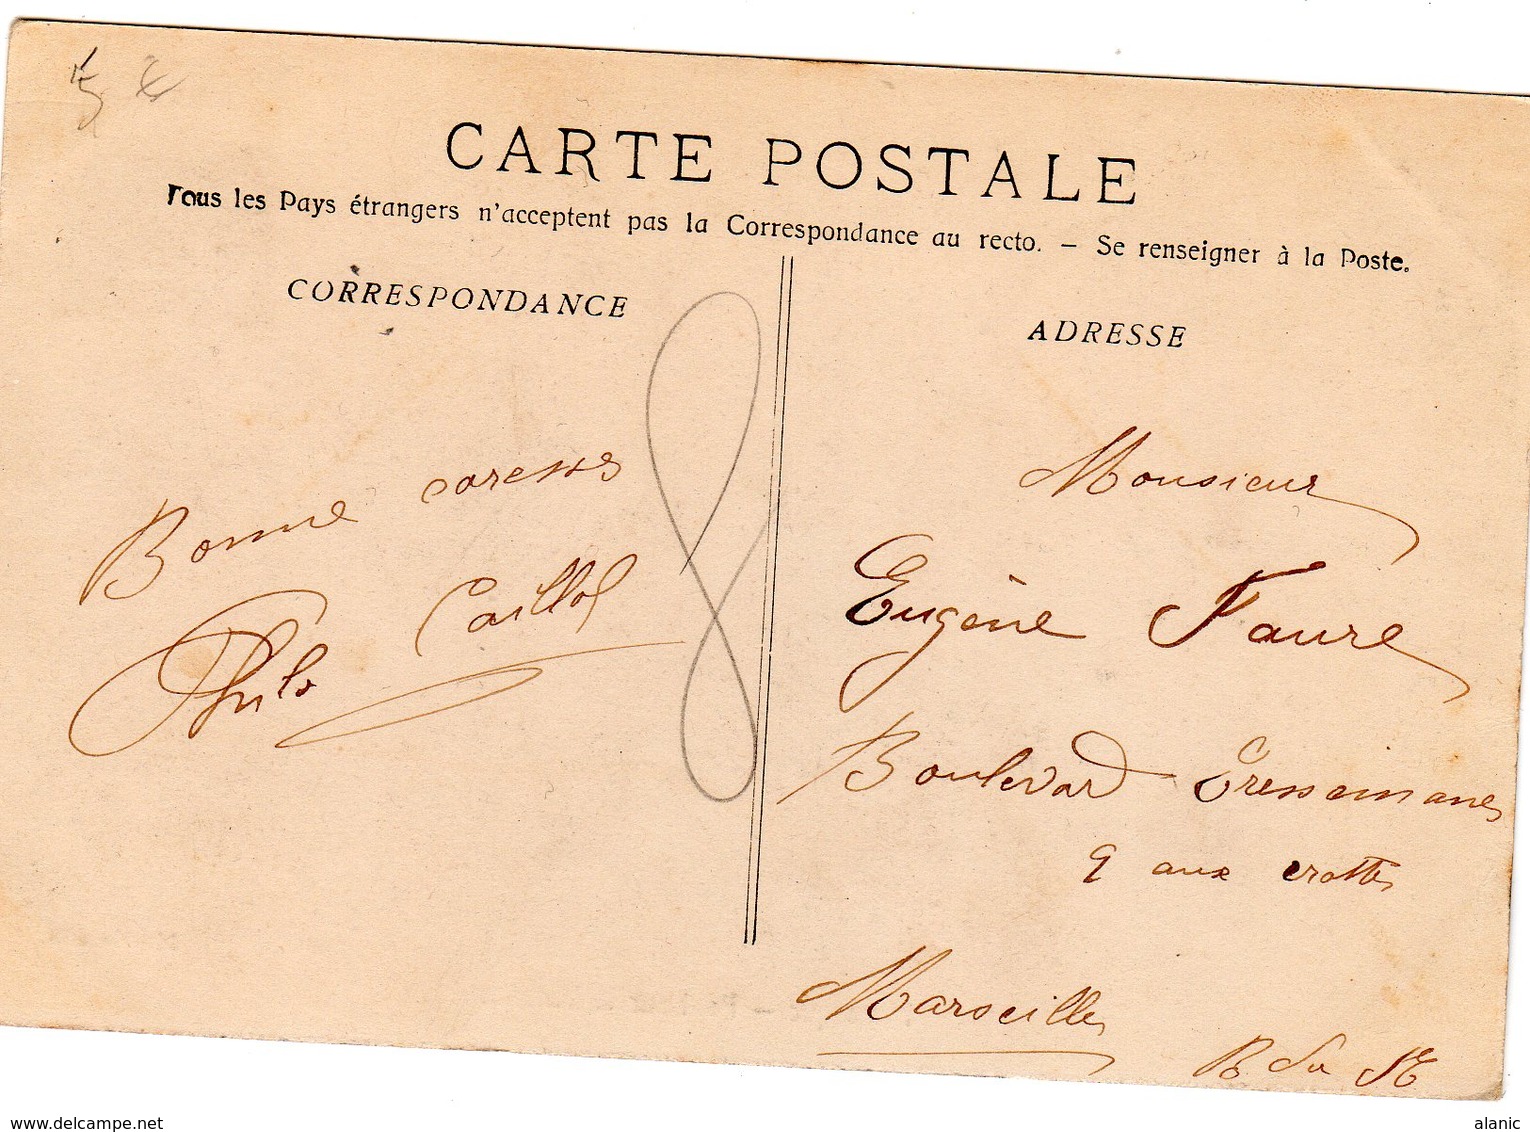 5 €
CARTE POSTALE
Tous les Pays étrangers n'acceptent pas la Correspondance au recto. — Se renseigner à la Poste.
CORRESPONDANCE
Bonne caresses
Philo Caillol
8
ADRESSE
Monsieur
Eugène Faure
Boulevard
9 aux crottes
Marseille
B du R
www.delcampe.net
alanic